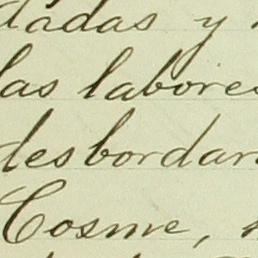 dadas y
las labores
desbordar
Cosme,